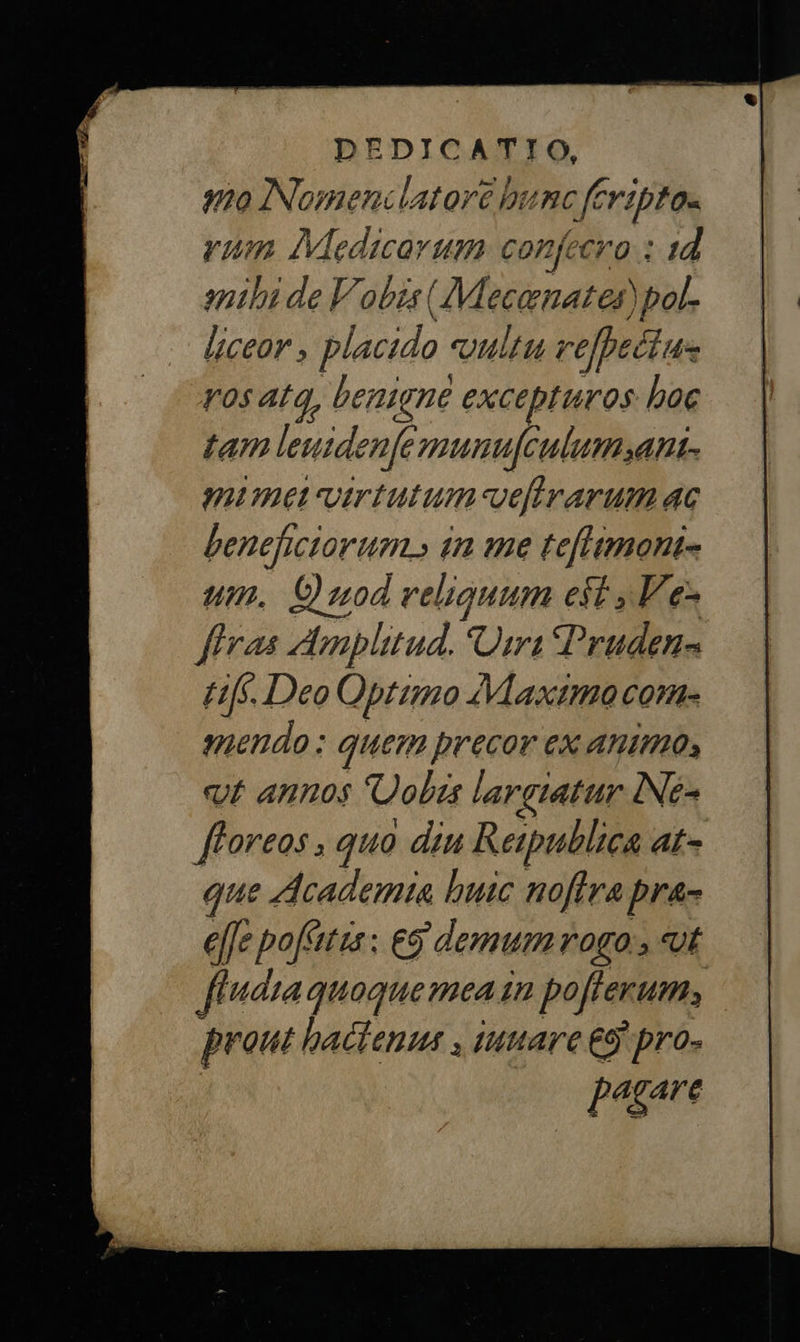 DEDICATIO,
mo Nomenclatorē hunc ſcripto-
rum Medicorum conſecro : id
mihi de Vobis (Mecœnates) pol-
liceor, placido vultu reſpectu-
ros atq, benignè excepturos hoc
tam leuidenſe munuſculum, ani-
mi mei virtutum veſtrarum ac
beneficiorum, in me teſtimoni-
um. Quod reliquum eſt, Ve-
ſtras Amplitud. Viri Pruden-
tiſſ. Deo Optimo Maximo com-
mendo: quem precor ex animo,
vt annos Vobis largiatur Ne-
ſtoreos, quò diu Reipublicæ at-
que Academiæ huic noſtræ præ-
eſſe poſsitis: & demum rogo, vt
ſtudia quoque mea in poſterum,
prout hactenus, iuuare & pro-
pagare